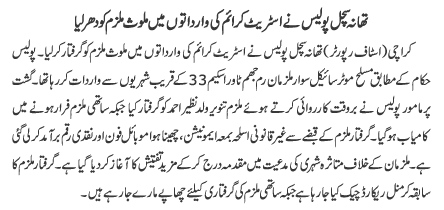 تھانہ سچل پولیس نے اسٹریٹ کرائم کی وارداتوں میں ملوث ملزم کو دھر لیا
کراچی (اسٹاف رپورٹر) تھانہ سچل پولیس نے اسٹریٹ کرائم کی وارداتوں میں ملوث ملزم کو گرفتار کر لیا۔ پولیس
حکام کے مطابق مسلح موٹر سائیکل سوار ملزمان رم جھم ٹاور اسکیم 33 کے قریب شہریوں سے واردات کر رہا تھا۔ گشت
پر مامور پولیس نے بروقت کارروائی کرتے ہوئے ملزم تنویر ولد نظیر احمد کو گرفتار کیا جبکہ ساتھی ملزم فرار ہونے میں
کامیاب ہو گیا۔ گرفتار ملزم کے قبضے سے غیر قانونی اسلحہ بمعہ ایمونیشن، چھینا ہوا موبائل فون اور نقدی رقم برآمد کر لی گئی
ہے۔ ملزمان کے خلاف متاثرہ شہری کی مدعیت میں مقدمہ درج کر کے مزید تفتیش کا آغاز کر دیا گیا ہے۔ گرفتار ملزم کا
سابقہ کرمنل ریکارڈ چیک کیا جا رہا ہے جبکہ ساتھی ملزم کی گرفتاری کیلئے چھاپے مارے جا رہے ہیں۔